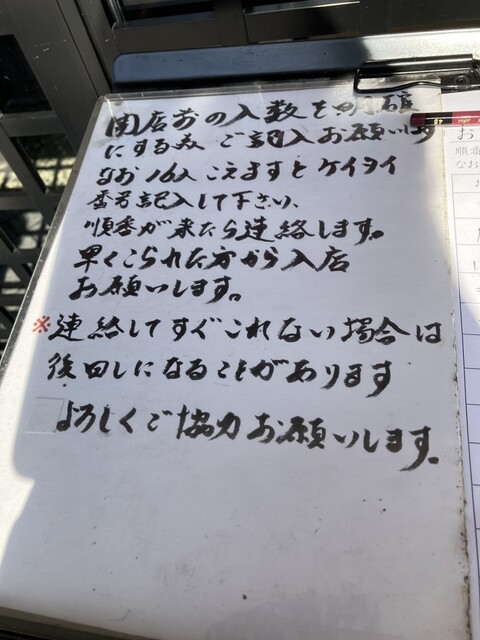 開店前の人数を明確
にする為 ご記入お願いします
なお16人こえますとケイタイ
番号記入して下さい、
順番が来たら連絡します。
早くこられた方から入店
お願いします。
※連絡してすぐこれない場合は
後回しになることがあります
よろしくご協力お願いします。
お
順番
なお